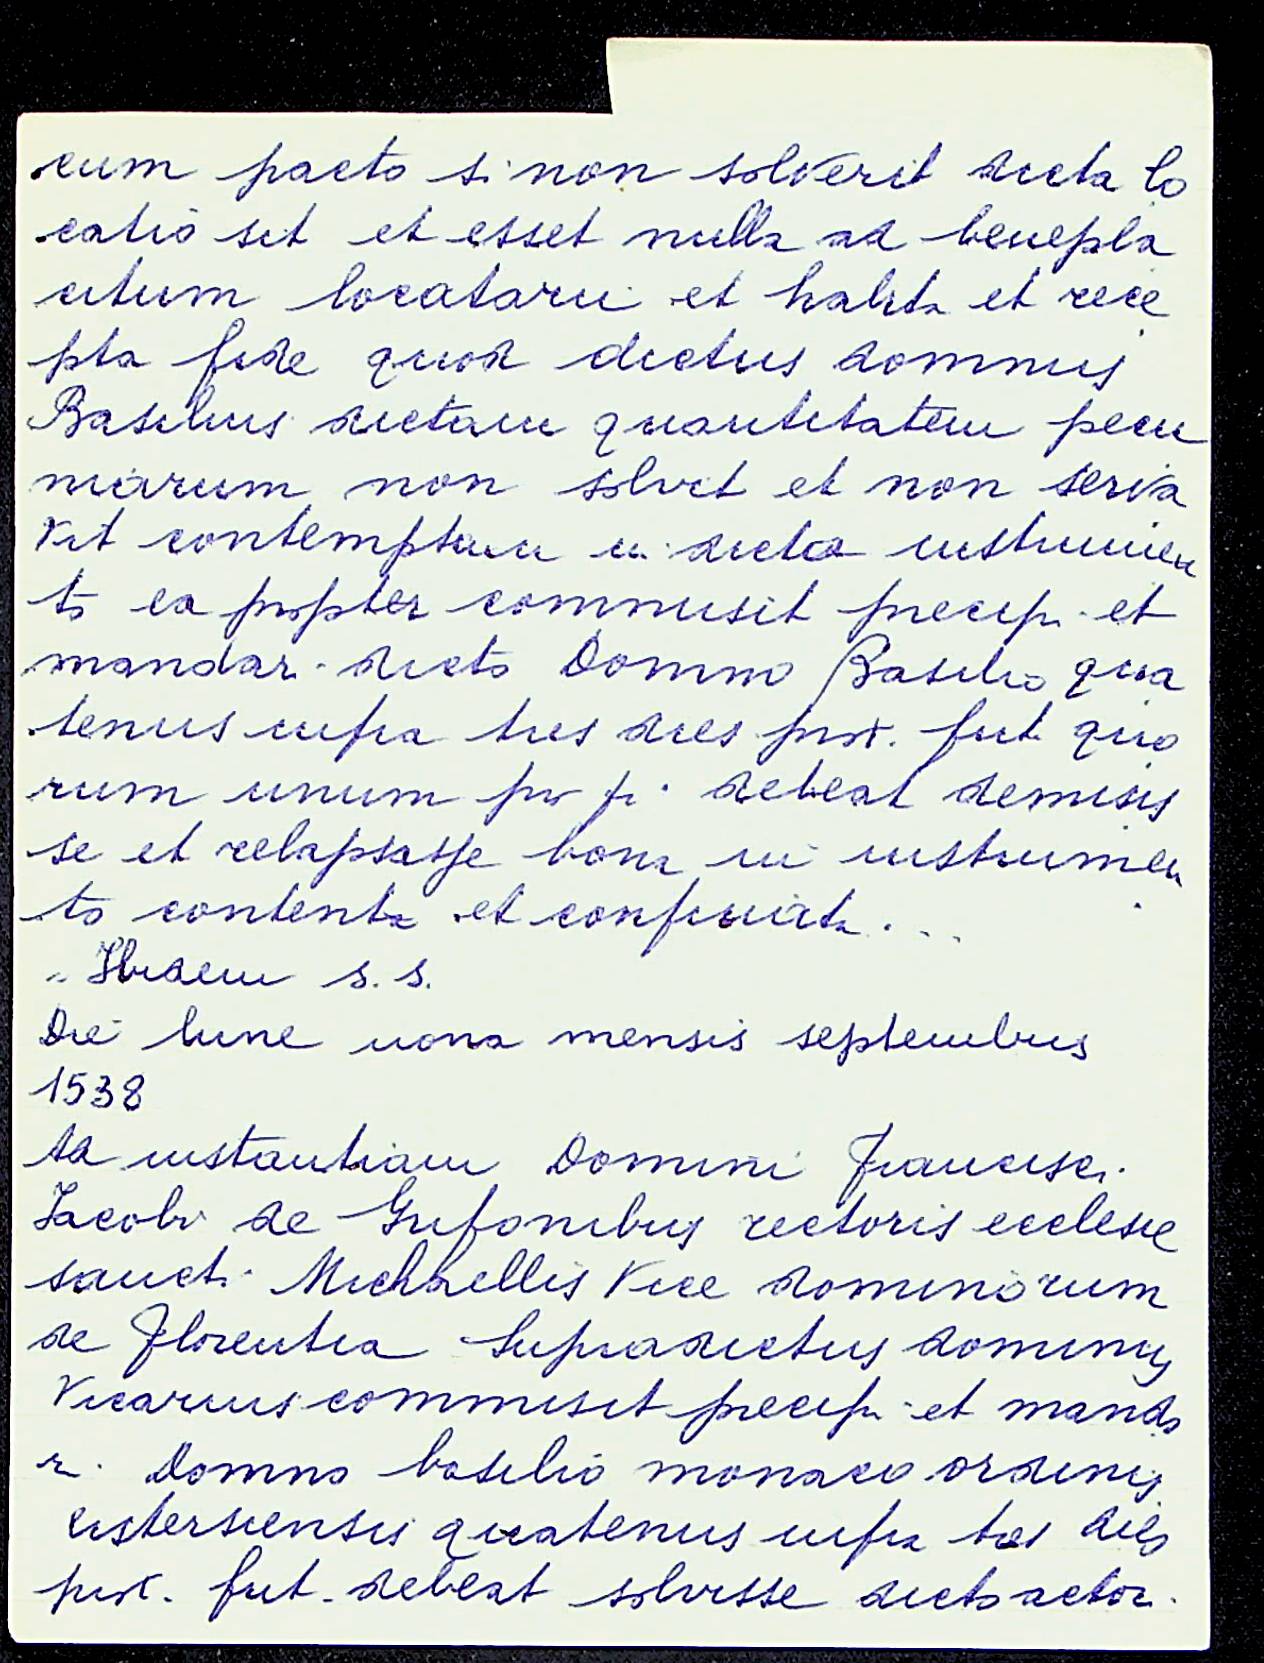 cum pacto si non solverit dicta lo
catio sit et esset nulla ad benepla
citum locatarii et habita et rece
pta fide quod dictus domnus
Basilius dictam quantitatem pecu
niarum non solvit et non serva
vit contemptam in dicto instrumen
to ea propter commisit precip. et
mandar. dicto Domno Basilio qua
tenus infra tres dies prox. fut. quo
rum unum pro p. debeat demisis
se et relapsasse bona in instrumen
to contenta et confinata...
"Ibidem s. s.
Die lune nona mensis septembris
1538
Ad instantiam Domini Francisci
Jacobi de Grifonibus rectoris ecclesie
sancti Michaellis Vice dominorum
de Florentia Supradictus dominus
Vicarius commisit precip. et manda
r. Domno basilio monaco ordinis
cisterciensis quatenus infra tres dies
prox. fut. debeat solvisse dicto actor.